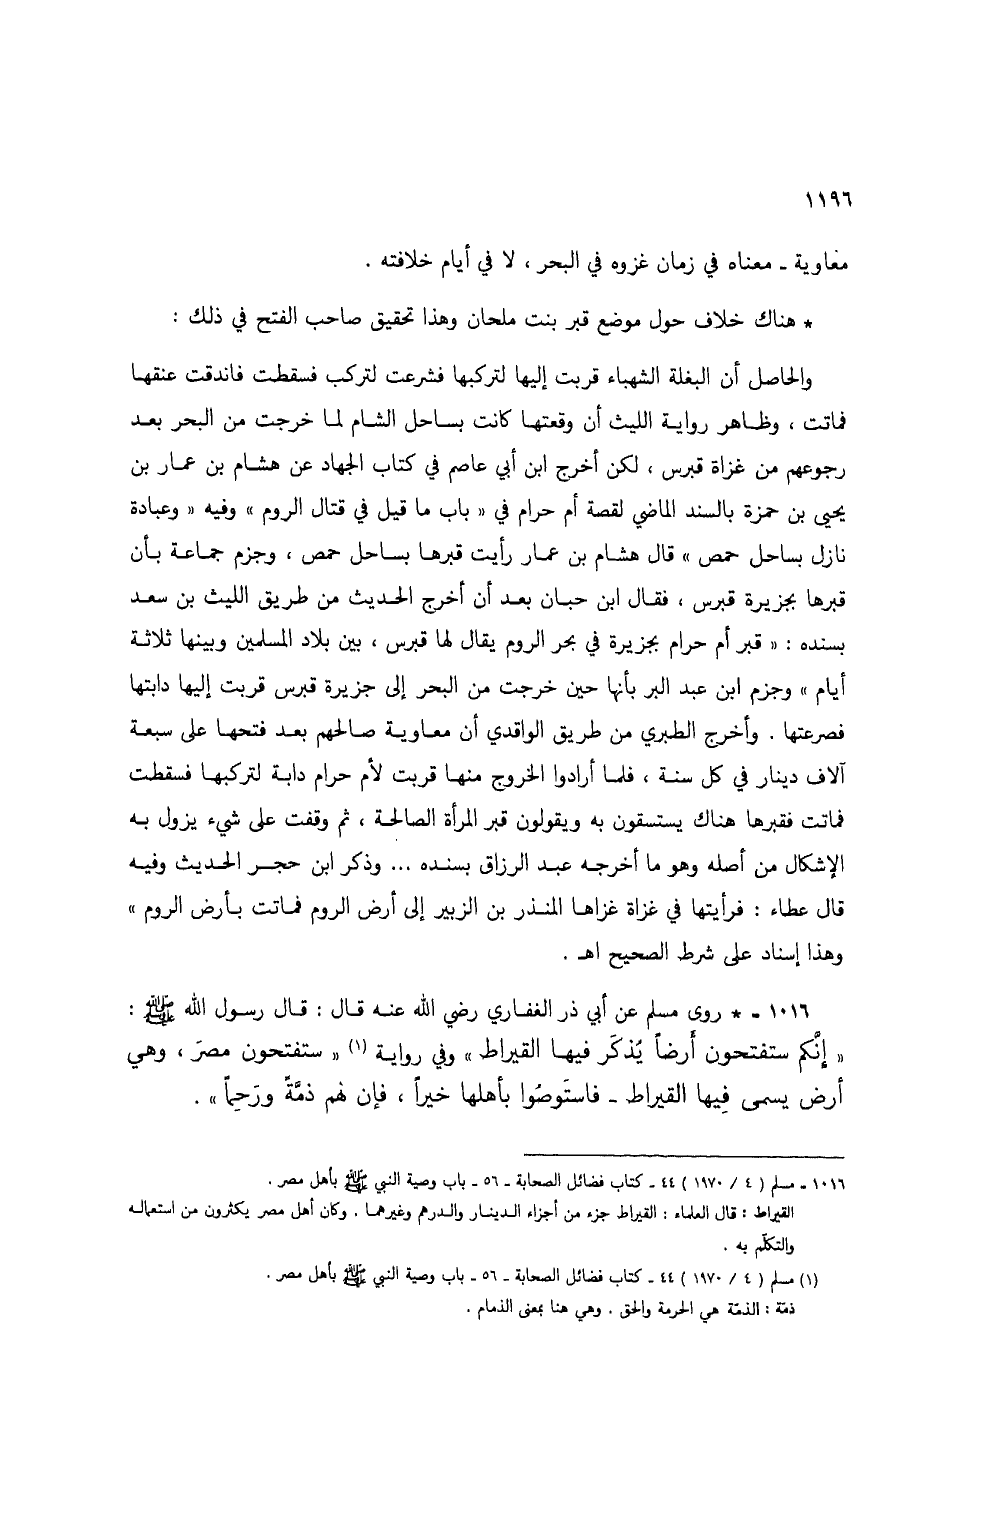 ١١٩٦
معاوية ـ معناه في زمان غزوه في البحر ، لا في أيام خلافته .
* هناك خلاف حول موضع قبر بنت ملحان وهذا تحقيق صاحب الفتح في ذلك :
والحاصل أن البغلة الشهباء قربت إليها لتركبها فشرعت لتركب فسقطت فاندقت عنقها
فماتت ، وظاهر رواية الليث أن وقعتها كانت بساحل الشام لما خرجت من البحر بعد
رجوعهم من غزاة قبرس ، لكن أخرج ابن أبي عاصم في كتاب الجهاد عن هشام بن عمار بن
يحيى بن حمزة بالسند الماضي لقصة أم حرام في « باب ما قيل في قتال الروم » وفيه « وعبادة
نازل بساحل حمص » قال هشام بن عمار رأيت قبرها بساحل حمص ، وجزم جماعة بأن
قبرها بجزيرة قبرس ، فقال ابن حبان بعد أن أخرج الحديث من طريق الليث بن سعد
بسنده : « قبر أم حرام بجزيرة في بحر الروم يقال لها قبرس ، بين بلاد المسلمين وبينها ثلاثة
أيام » وجزم ابن عبد البر بأنها حين خرجت من البحر إلى جزيرة قبرس قربت إليها دابتها
فصرعتها . وأخرج الطبري من طريق الواقدي أن معاوية صالحهم بعد فتحها على سبعة
آلاف دينار في كل سنة ، فلما أرادوا الخروج منها قربت لأم حرام دابة لتركبها فسقطت
فماتت فقبرها هناك يستسقون به ويقولون قبر المرأة الصالحة ، ثم وقفت على شيء يزول به
الإشكال من أصله وهو ما أخرجه عبد الرزاق بسنده ... وذكر ابن حجر الحديث وفيه
قال عطاء : فرأيتها في غزاة غزاها المنذر بن الزبير إلى أرض الروم فماتت بأرض الروم »
وهذا إسناد على شرط الصحيح اهـ .
١٠١٦ ـ * روى مسلم عن أبي ذر الغفاري رضي الله عنه قال : قال رسول الله ﷺ :
« إنَّكم ستفتحون أَرضاً يُذكَر فيها القيراط » وفي رواية (١) « ستفتحون مصرَ ، وهي
أرض يسمى فِيها القيراط ـ فاستَوصُوا بأهلها خيراً ، فإن لهم ذمَّةً ورَحِماً » .
١٠١٦ ـ مسلم ( ٤ / ١٩٧٠ ) ٤٤ ـ كتاب فضائل الصحابة ـ ٥٦ ـ باب وصية النبي ﷺ بأهل مصر .
القيراط : قال العلماء : القيراط جزء من أجزاء الدينار والدرهم وغيرهما . وكان أهل مصر يكثرون من استعماله
والتكلّم به .
(١) مسلم ( ٤ / ١٩٧٠ ) ٤٤ ـ كتاب فضائل الصحابة ـ ٥٦ ـ باب وصية النبي ﷺ بأهل مصر .
ذمّة : الذمّة هي الحرمة والحق . وهي هنا بمعنى الذمام .